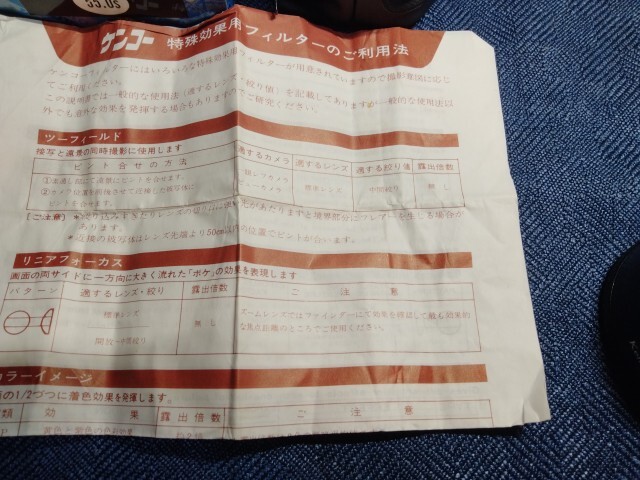 55.0s
ケンコー 特殊効果用フィルターのご利用法
ケンコーフィルターにはいろいろな特殊効果用フィルターが用意されていますので撮影意図に応じ
てご利用ください。
この説明書では一般的な使用法(適するレンズ・絞り値)を記載してありますが一般的な使用法以
外でも意外な効果を発揮する場合もありますのでご研究ください。
ツーフィールド
接写と遠景の同時撮影に使用します
ピント合せの方法 適するカメラ 適するレンズ 適する絞り値 露出倍数
ピントを合せます。
一眼レフカメラ 標準レンズ 中間絞り 無し
[ご注意] ●絞り込みすぎたりレンズの
があたりますと境界部分にフレアーを生じる場合が
あります。
●近接の被写体はレンズ先端より50cm以内の位置でピントが合います。
リニアフォーカス
画面の両サイドに一方向に大きく流れた「ボケ」の効果を表現します
パターン 適するレンズ・絞り 露出倍数 ご注意
標準レンズ
開放~中間絞り
無し
ズームレンズではファインダーにて効果を確認して最も効果的
な焦点距離のところでご使用ください。
カラーイメージ
の1/2づつに着色効果を発揮します。
類 効果 露出倍数 ご注意